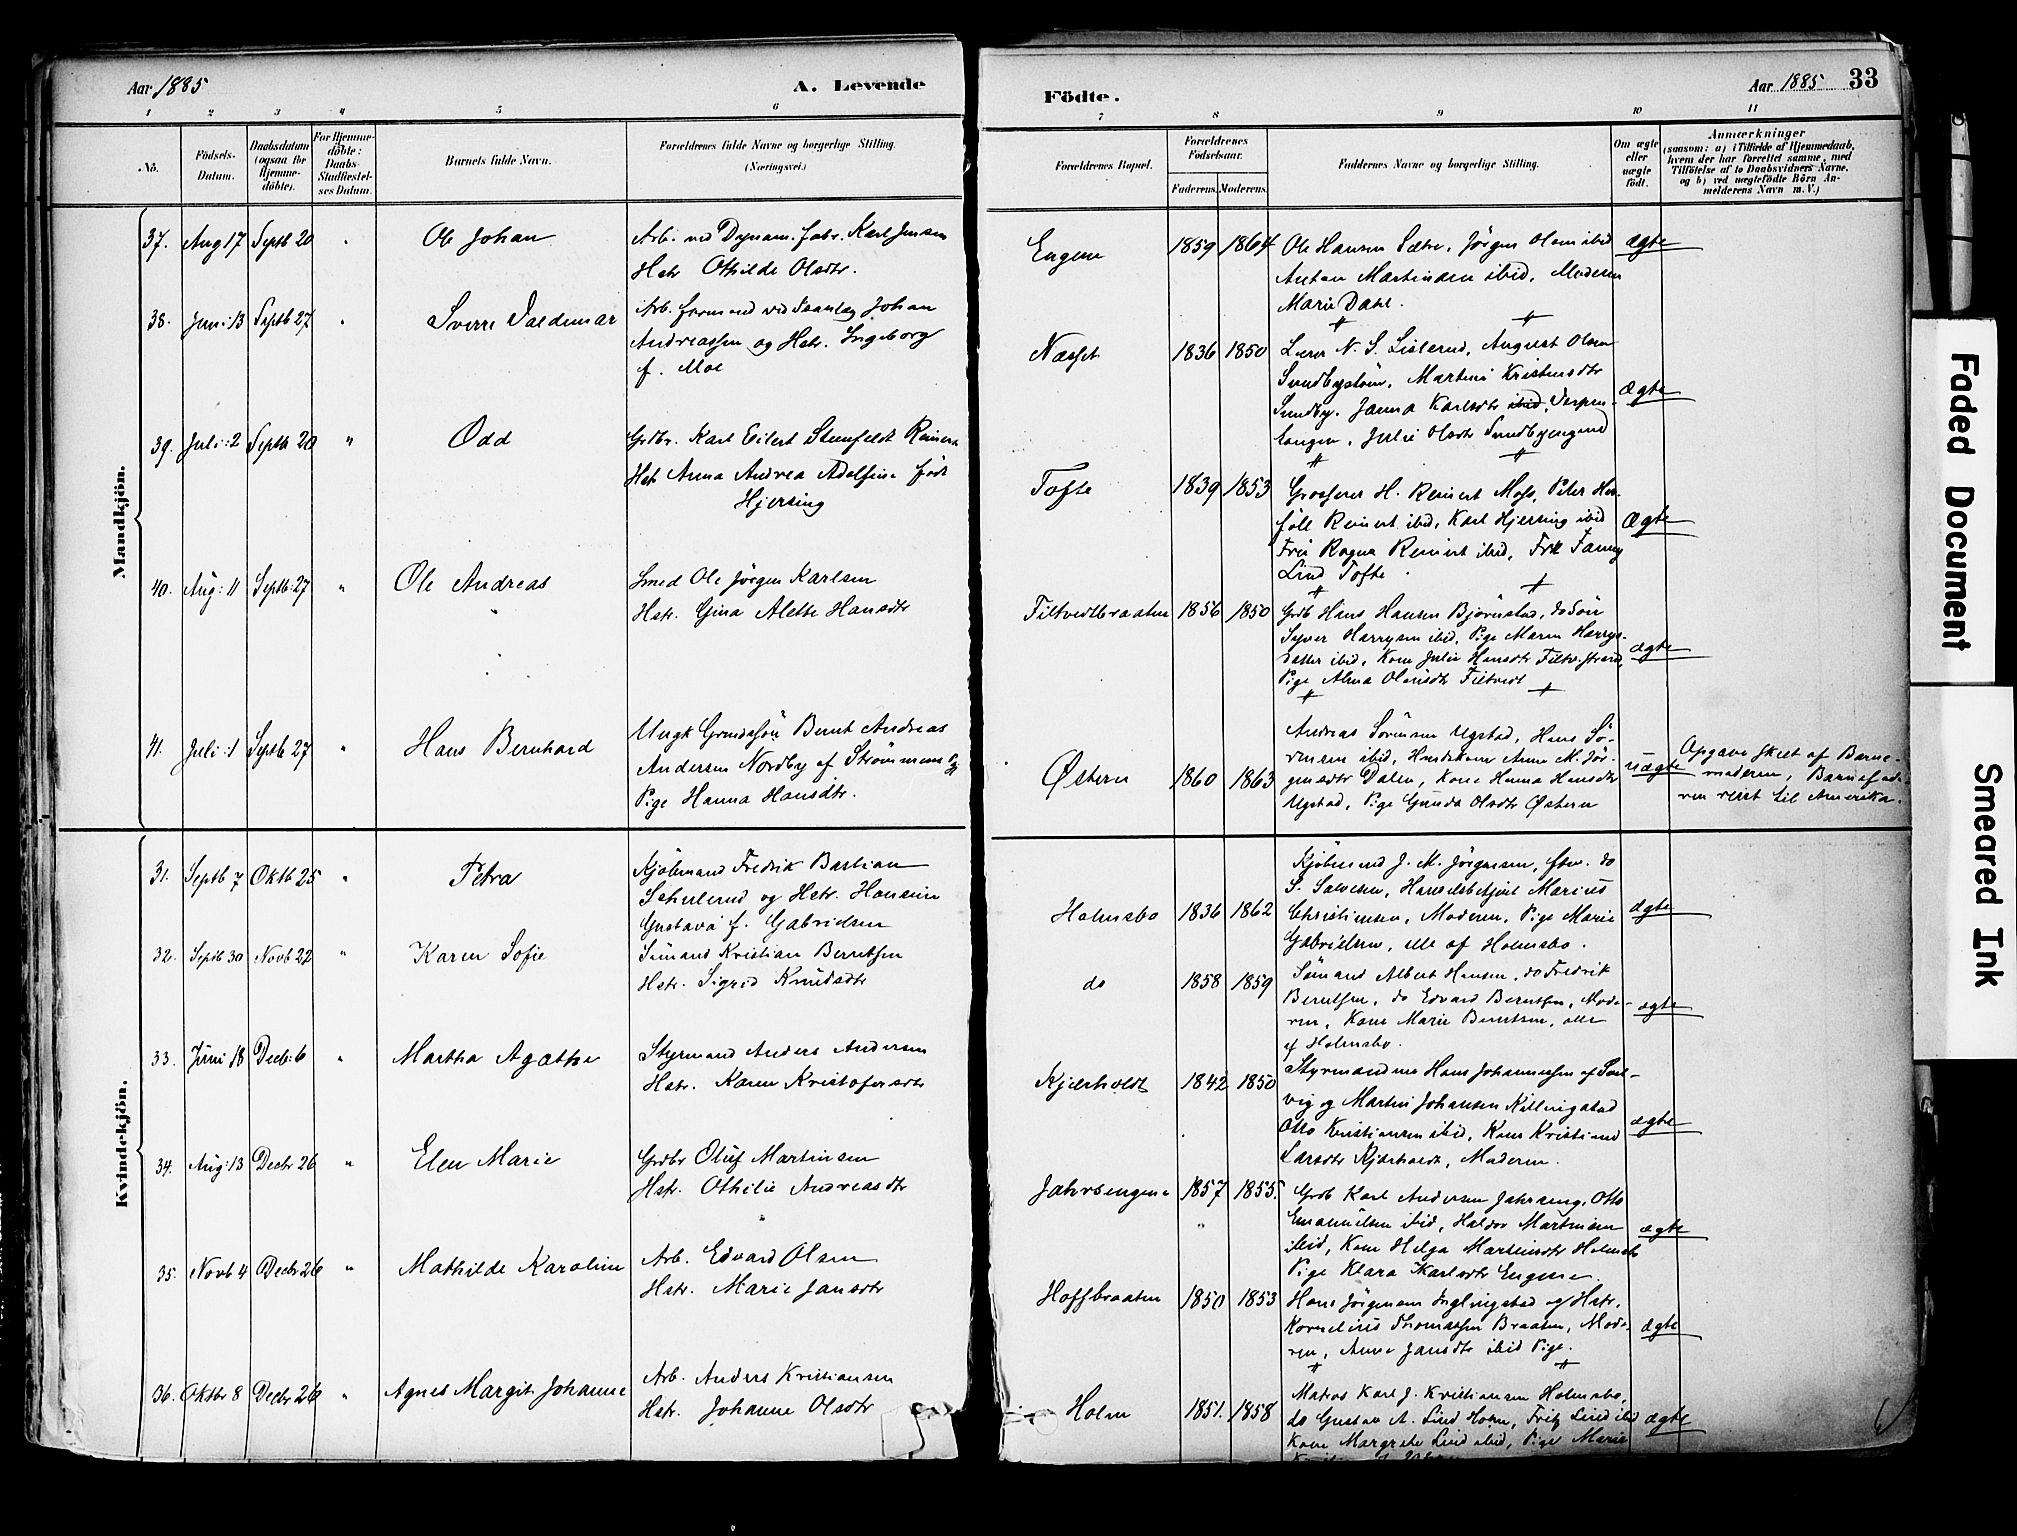 Aar 1885
A. Levende
Födte.
Aar 1885
33
1 2 3 4 5 6 7 8 9 10 11
No.
Födsels-
Datum.
Daabsdatum
(ogsaa for
Hjemme-
döbte).
For Hjemme-
döbte:
Daabs-
Stadfæstel-
ses Datum.
Barnets fulde Navn.
Forældrenes fulde Navne og borgerlige Stilling.
(Næringsvei.)
Forældrenes Bopæl.
Forældrenes
Födselsaar.
Faderens. Moderens.
Faddernes Navne og borgerlige Stilling.
Om ægte
eller
uægte
født.
Anmærkninger
(saasom: a) i Tilfælde af Hjemmedaab,
hvem der har forrettet samme, med
Tilföielse af to Daabsvidners Navne,
og b) ved uægtefödte Börn An-
melderens Navn m. V.)
Mandkjön.
37. Aug 17 Septb 20 Ole Johan
Arb. ved Dynam. fabr. Karl Jensen
Hstr Othilde Olsdtr.
Engene 1859 1864
Ole Hansen Sætre, Jörgen Olsen ibid
Anton Martinsen ibid, Moderen
Marie Dahl.
ægte
38. Juni 13 Septb 27 Sverre Valdemar
Arb. formand ved Johan
Andreassen og Hstr. Ingeborg
f. Moe
Næsset 1836 1850
Lærer N. S. Lislerud, August Olsen
Martine Kristensdtr
Sundby. Janna Karlsdtr ibid,
engen, Julie Olsdtr Sundbyengene
Ægte
39. Juli 2 Septb 20 " Odd
Grdbr. Karl Eilert Stenfeldt Reinert
Hstr Anna Andrea Adolfine født
Hjersing
Tofte 1839 1853
Grosserer H. Reinert Moss, Peter Her-
föll Reinert ibid, Karl Hjersing ibid
Ragna Reinert ibid, Frk Fanny
Lind Tofte.
Ægte
40. Aug: 11 Septb 27 " Ole Andreas
Smed Ole Jörgen Karlsen
Hstr. Gina Alette Hansdtr
Filtvedtbraaten 1856 1850
Grdb Hans Hansen Björnstad, do Sön
Syver Harrysen ibid, Pige Maren Harrys-
datter ibid, Kone Julie Hansdtr Filtv. strand,
Pige Alma Olausdtr Filtvedt
ægte
41. Juli 1 Septb 27 " Hans Bernhard
Ungk Grmdssön Bernt Andreas
Andersen Nordby af Strömmens
Pige Hanna Hansdtr.
Östern 1860 1863
Andreas Sörensen Ugstad, Hans Sö-
rensen ibid, Huuskone Anne M. Jör-
gensdtr Dalen, Kone Hanna Hansdtr
Ugstad, Pige Gunda Olsdtr Östern
uægte
Opgave skeet af Barne-
moderen, Barnefade-
ren reist til Amerika.
Kvindekjön.
31. Septb 7 Oktb 25 " Petra
Kjöbmand Fredrik Bastian
Schulerud og Hstr. Hansine
Gustava f. Gabrielsen
Holmsbo 1836 1862
Kjöbmand J. M. Jörgensen, do
S. Salvesen, Handelsbetjent Marius
Christensen, Moderen, Pige Marie
Gabrielsen, alle af Holmsbo.
ægte
32. Septb 30 Novb 22 " Karen Sofie
Sömand Kristian Berntsen
Hstr. Sigrid Knudsdtr
do 1858 1859
Sömand Albert Hansen, do Fredrik
Berntsen, do Edvard Berntsen, Mode-
ren, Kone Marie Berntsen, alle
af Holmsbo.
ægte
33. Juni 18 Decb: 6 " Martha Agathe
Styrmand Anders Andersen
Hstr. Karen Kristofersdtr
Kjærholdt 1842 1850
Styrmændene Hans Johannessen af Sol-
vig og Martin Johansen Killingstad
Otto Kristiansen ibid, Kone Kristiane
Larsdtr Kjærholdt, Moderen.
ægte
34. Aug: 13 Decbr 26 " Elen Marie
Grdbr Oluf Martinsen
Hstr. Othilie Andreasdtr
Jahrsengene 1857 1855.
Grdb Karl Andersen Jahrseng, Otto
Emanuelsen ibid, Haldor Martinsen
ibid, Kone Helga Martinsdtr
Pige Klara Karlsdtr Engene.
ægte
35. Novb 4 Decbr 26 " Mathilde Karoline
Arb. Edvard Olsen
Hstr. Marie Jansdtr
Hoffbraaten 1850 1853
Hans Jörgensen Inglingstad og Hstr.
Kornelius Thomassen Braaten, Mode-
ren, Anne Jansdtr ibid Pige.
ægte
36. Oktbr 8 Decbr 26 " Agnes Margit Johanne
Arb. Anders Kristiansen
Hstr. Johanne Olsdtr
Holm 1851. 1858
Matros Karl J. Kristiansen Holmsbo,
do Gustav A. Lind Holm, Fritz Lind ibid
Kone Margrete Lind ibid, Pige Marie
ægte
Faded Document
Smeared Ink